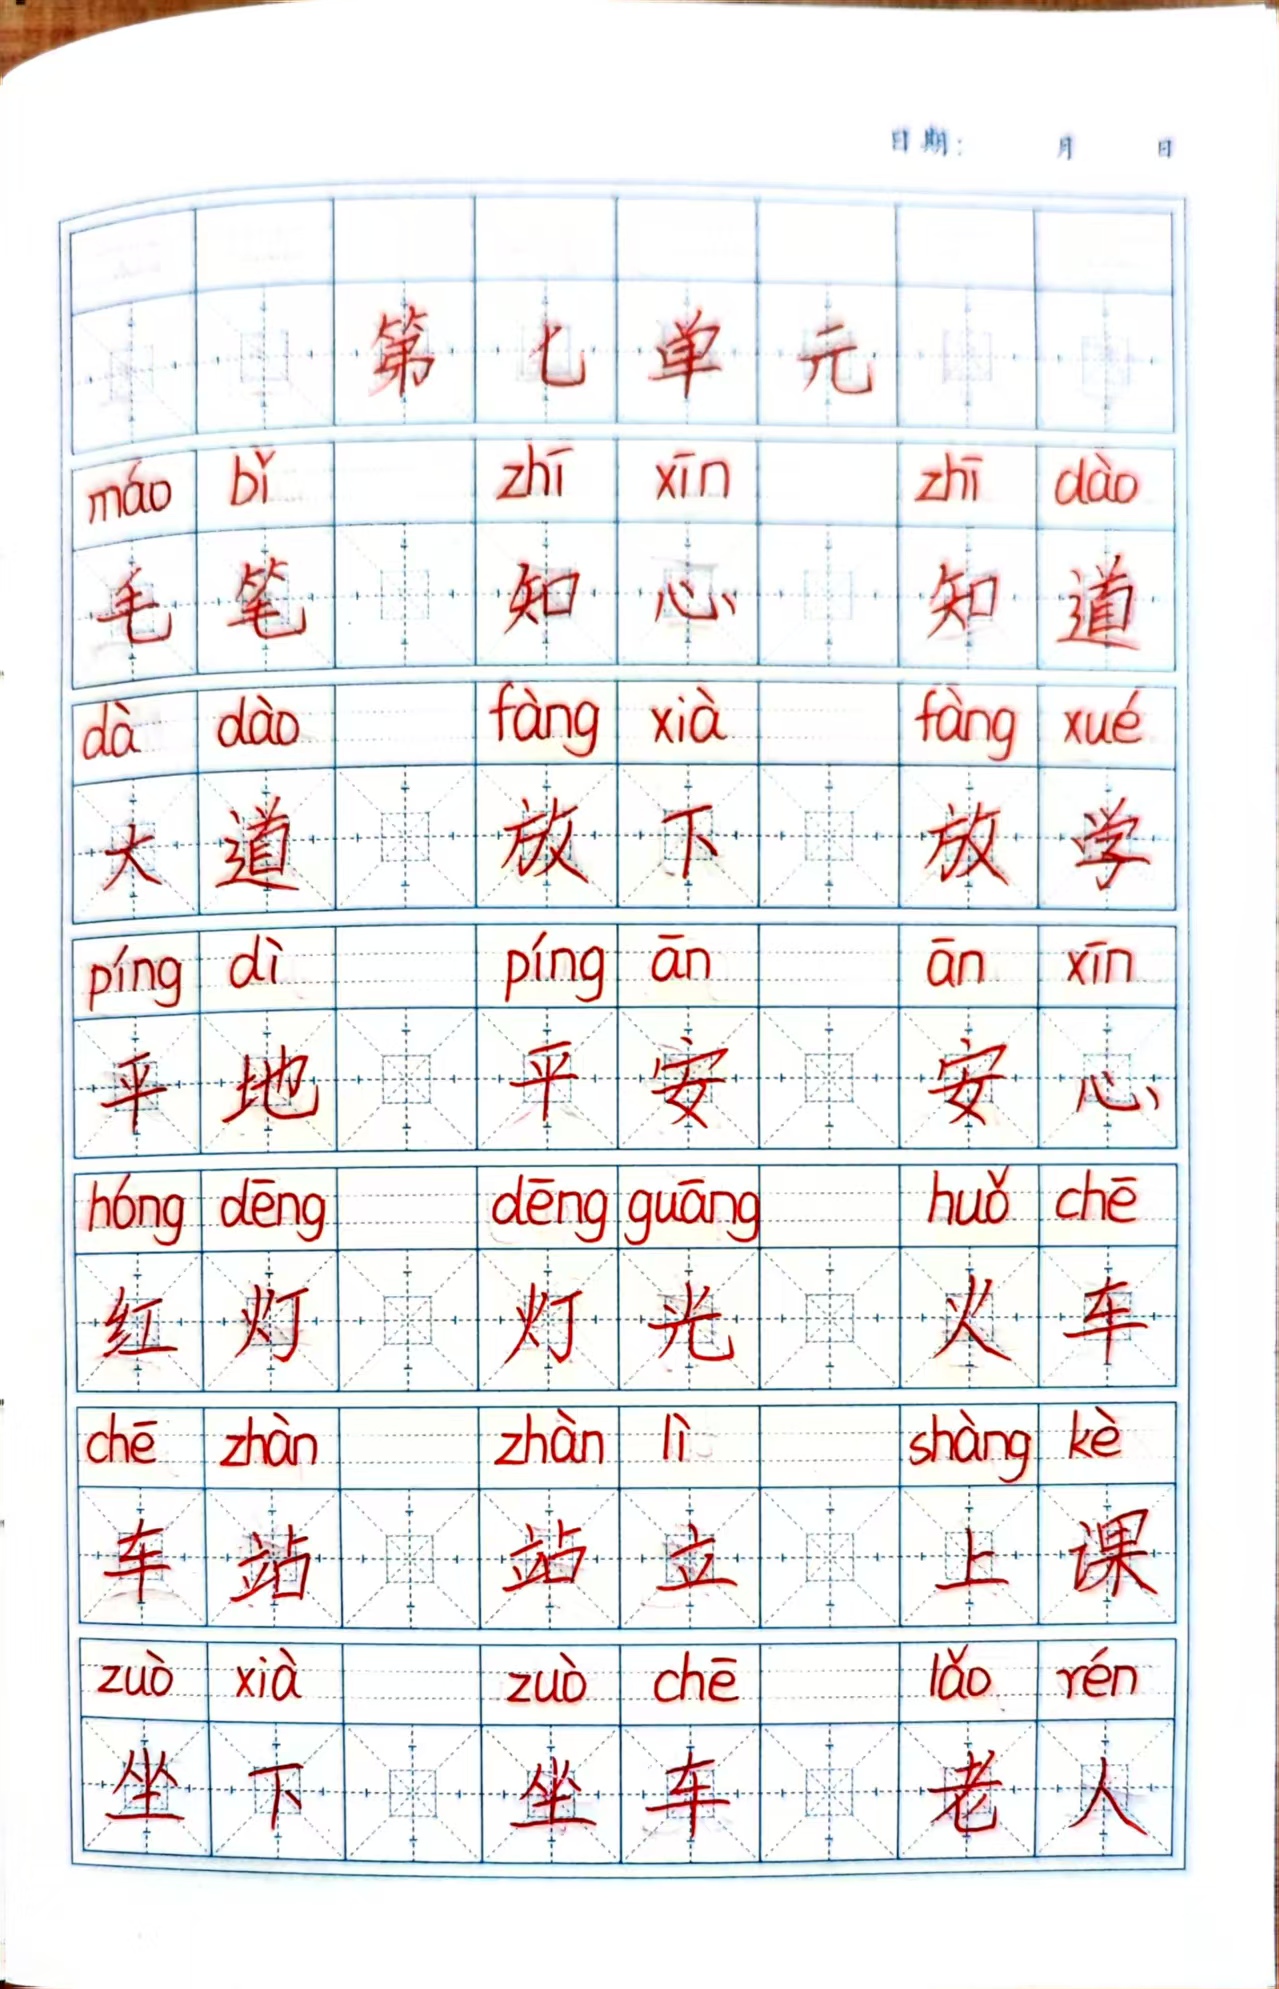 日期: 月 日
第七单元
máo bǐ zhī xīn zhī dào
毛笔 知心 知道
dà dào fàng xià fàng xué
大道 放下 放学
píng dì píng ān ān xīn
平地 平安 安心
hóng dēng dēng guāng huǒ chē
红灯 灯光 火车
chē zhàn zhàn lì shàng kè
车站 站立 上课
zuò xià zuò chē lǎo rén
坐下 坐车 老人